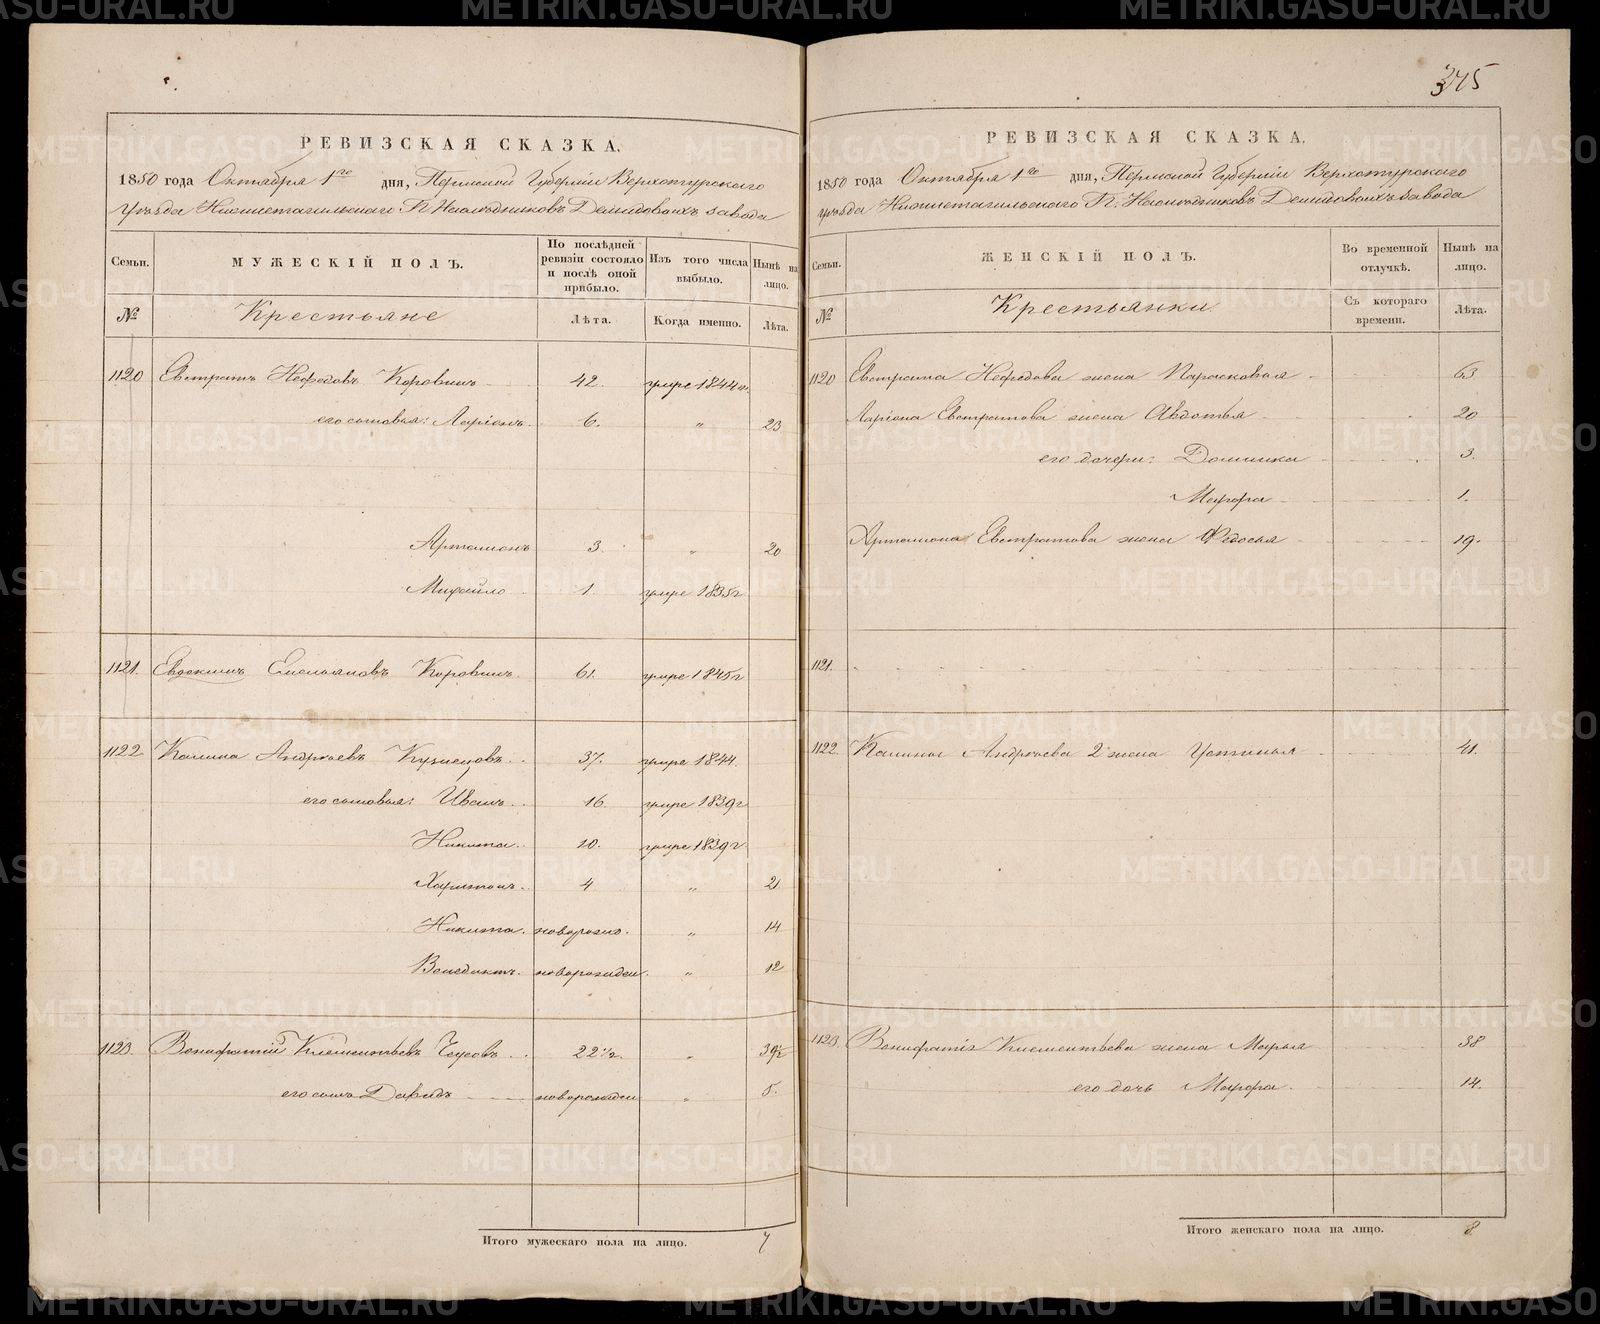 375
РЕВИЗСКАЯ СКАЗКА.
1850 года Октября 1го дня, Пермской Губерніи Верхотурскаго
Уѣзда Нижнетагильскаго Гг. Наслѣдниковъ Демидовыхъ завода
Семьи. МУЖЕСКІЙ ПОЛЪ. По послѣдней ревизіи состояло и послѣ оной прибыло. Изъ того числа выбыло. Нынѣ на лицо.
№ Крестьяне Лѣта. Когда именно. Лѣта.
1120 Евстратъ Нефедовъ Коровинъ 42. умре 1844 г.
его сыновья: Ларіонъ. 6. " 23
Артамонъ 3. " 20
Михайло 1. умре 1835 г
1121. Евдокимъ Емельяновъ Коровинъ. 61. умре 1845 г
1122 Калина Андреевъ Кузнецовъ. 37. умре 1844.
его сыновья: Иванъ. 16. умре 1839 г
Никита. 10. умре 1839 г.
Харитонъ. 4 " 21
Никита. новорожд. " 14
Венедиктъ. новорожден. " 12
1123. Вонифатій Клементьевъ Чусовъ 22 1/2. " 39 1/2
его сынъ Давыдъ новорожден " 5.
Итого мужескаго пола на лицо. 7
РЕВИЗСКАЯ СКАЗКА.
1850 года Октября 1го дня, Пермской Губерніи Верхотурскаго
уѣзда Нижнетагильскаго Гг. Наслѣдниковъ Демидовыхъ завода
Семьи. ЖЕНСКІЙ ПОЛЪ. Во временной отлучкѣ. Нынѣ на лицо.
№ Крестьянки. Съ котораго времени. Лѣта.
1120 Евстрата Нефедова жена Парасковья 63
Ларіона Евстратова жена Авдотья 20
его дочери: Домника 3.
Мавра 1.
Артамона Евстратова жена Федосья 19.
1121.
1122. Калины Андреева 2 жена Устинья 41.
1123. Вонифатія Клементьева жена Марья 38
его дочь Мавра. 14.
Итого женскаго пола на лицо. 8
METRIKI.GASO-URAL.RU